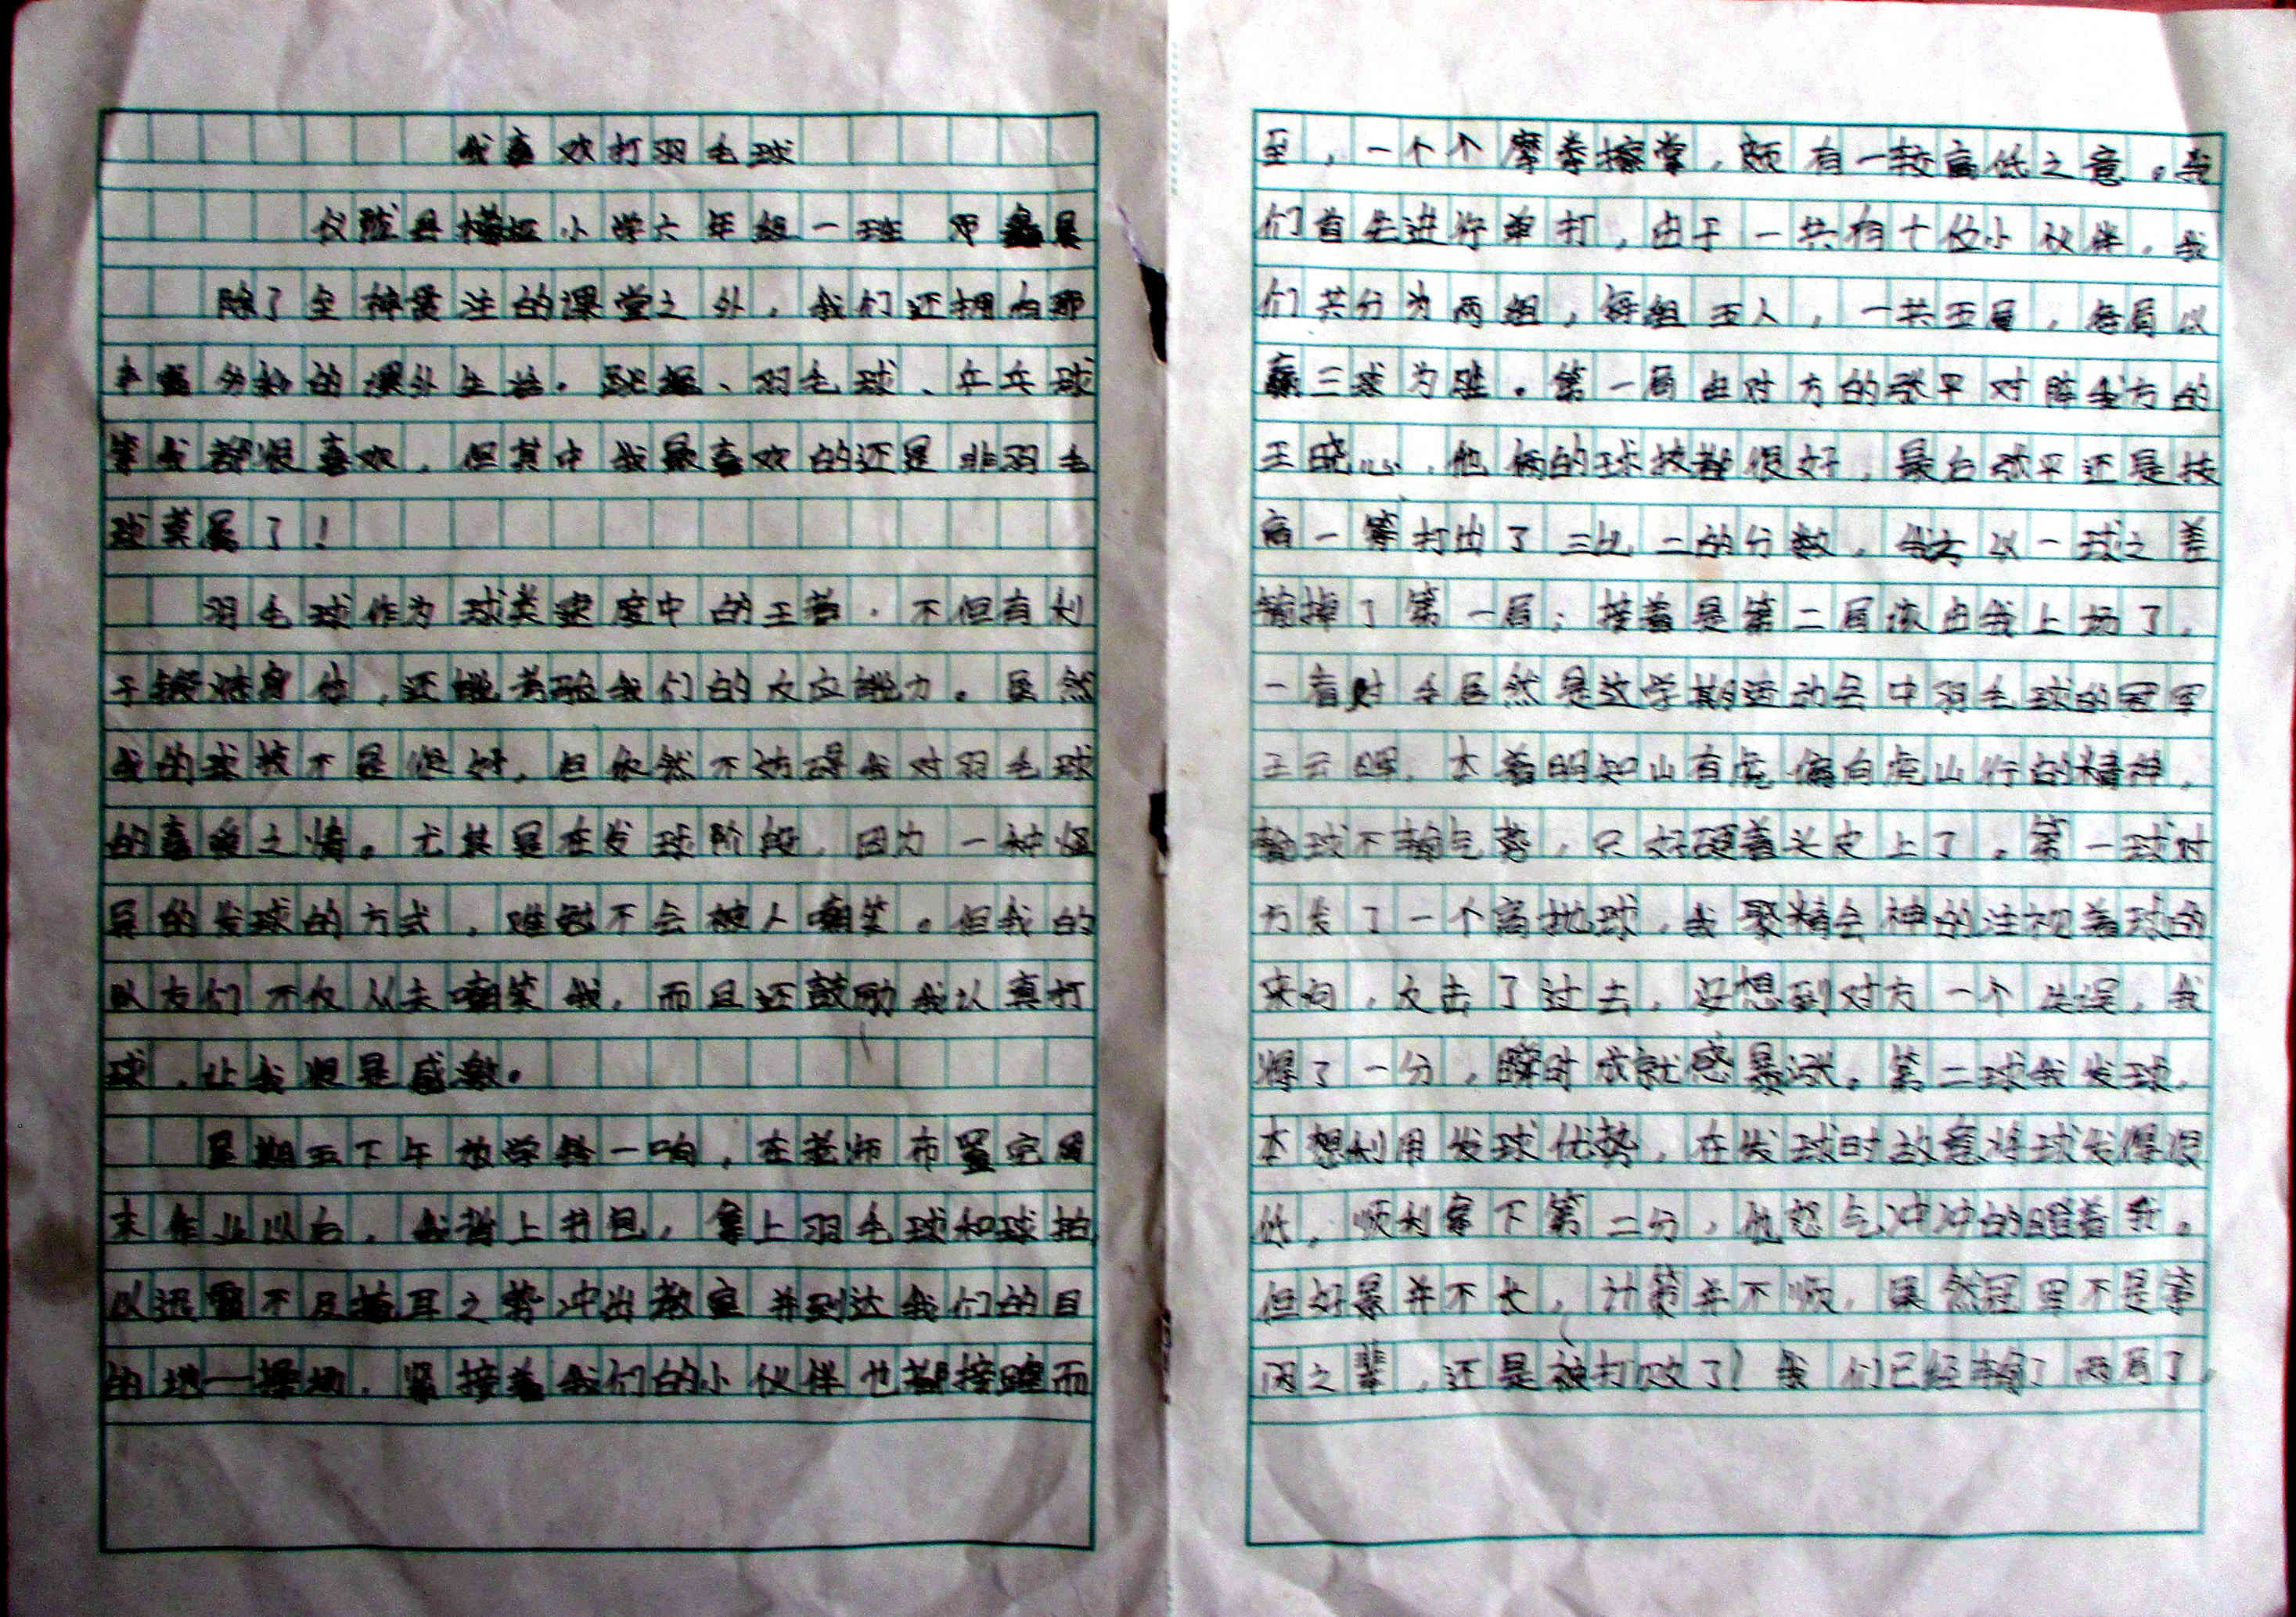 我喜欢打羽毛球
仪陇县 小学六年组一班 邓
除了全神贯注的课堂之外，我们还拥有那
丰富多彩的课外生活。跳绳、羽毛球、乒乓球
等我都很喜欢，但其中我最喜欢的还是非羽毛
球莫属了！
羽毛球作为球类速度中的王者，不但有利
于锻炼身体，还能考验我们的反应能力。虽然
我的球技不是很好，但依然不妨碍我对羽毛球
的喜爱之情。尤其是在发球阶段，因为一种怪
异的发球的方式，难免不会被人嘲笑。但我的
队友们不仅从未嘲笑我，而且还鼓励我认真打
球，让我很是感激。
星期五下午放学铃一响，在老师布置完周
末作业以后，我背上书包，拿上羽毛球和球拍
以迅雷不及掩耳之势冲出教室并到达我们的目
的地—操场，紧接着我们的小伙伴也都接踵而
至，一个个摩拳擦掌，颇有一较高低之意。我
们首先进行单打，由于一共有十位小伙伴，我
们共分为两组，每组五人，一共五局，每局以
赢三球为胜。第一局由对方的张平对阵我方的
王晓心，他俩的球技都很好，最后张平还是技
高一筹打出了三比二的分数，我方以一球之差
输掉了第一局；接着是第二局该由我上场了，
一看对手居然是这学期运动会中羽毛球的冠军
王云晖，本着明知山有虎偏向虎山行的精神，
输球不输气势，只好硬着头皮上了。第一球对
方发了一个高抛球，我聚精会神的注视着球的
来向，反击了过去，没想到对方一个失误，我
得了一分，瞬时成就感暴涨。第二球我发球，
本想利用发球优势，在发球时故意将球发得很
低，顺利拿下第二分，他怒气冲冲的瞪着我。
但好景并不长，计策并不顺，果然冠军不是等
闲之辈，还是被打败了！我们已经输了两局了，